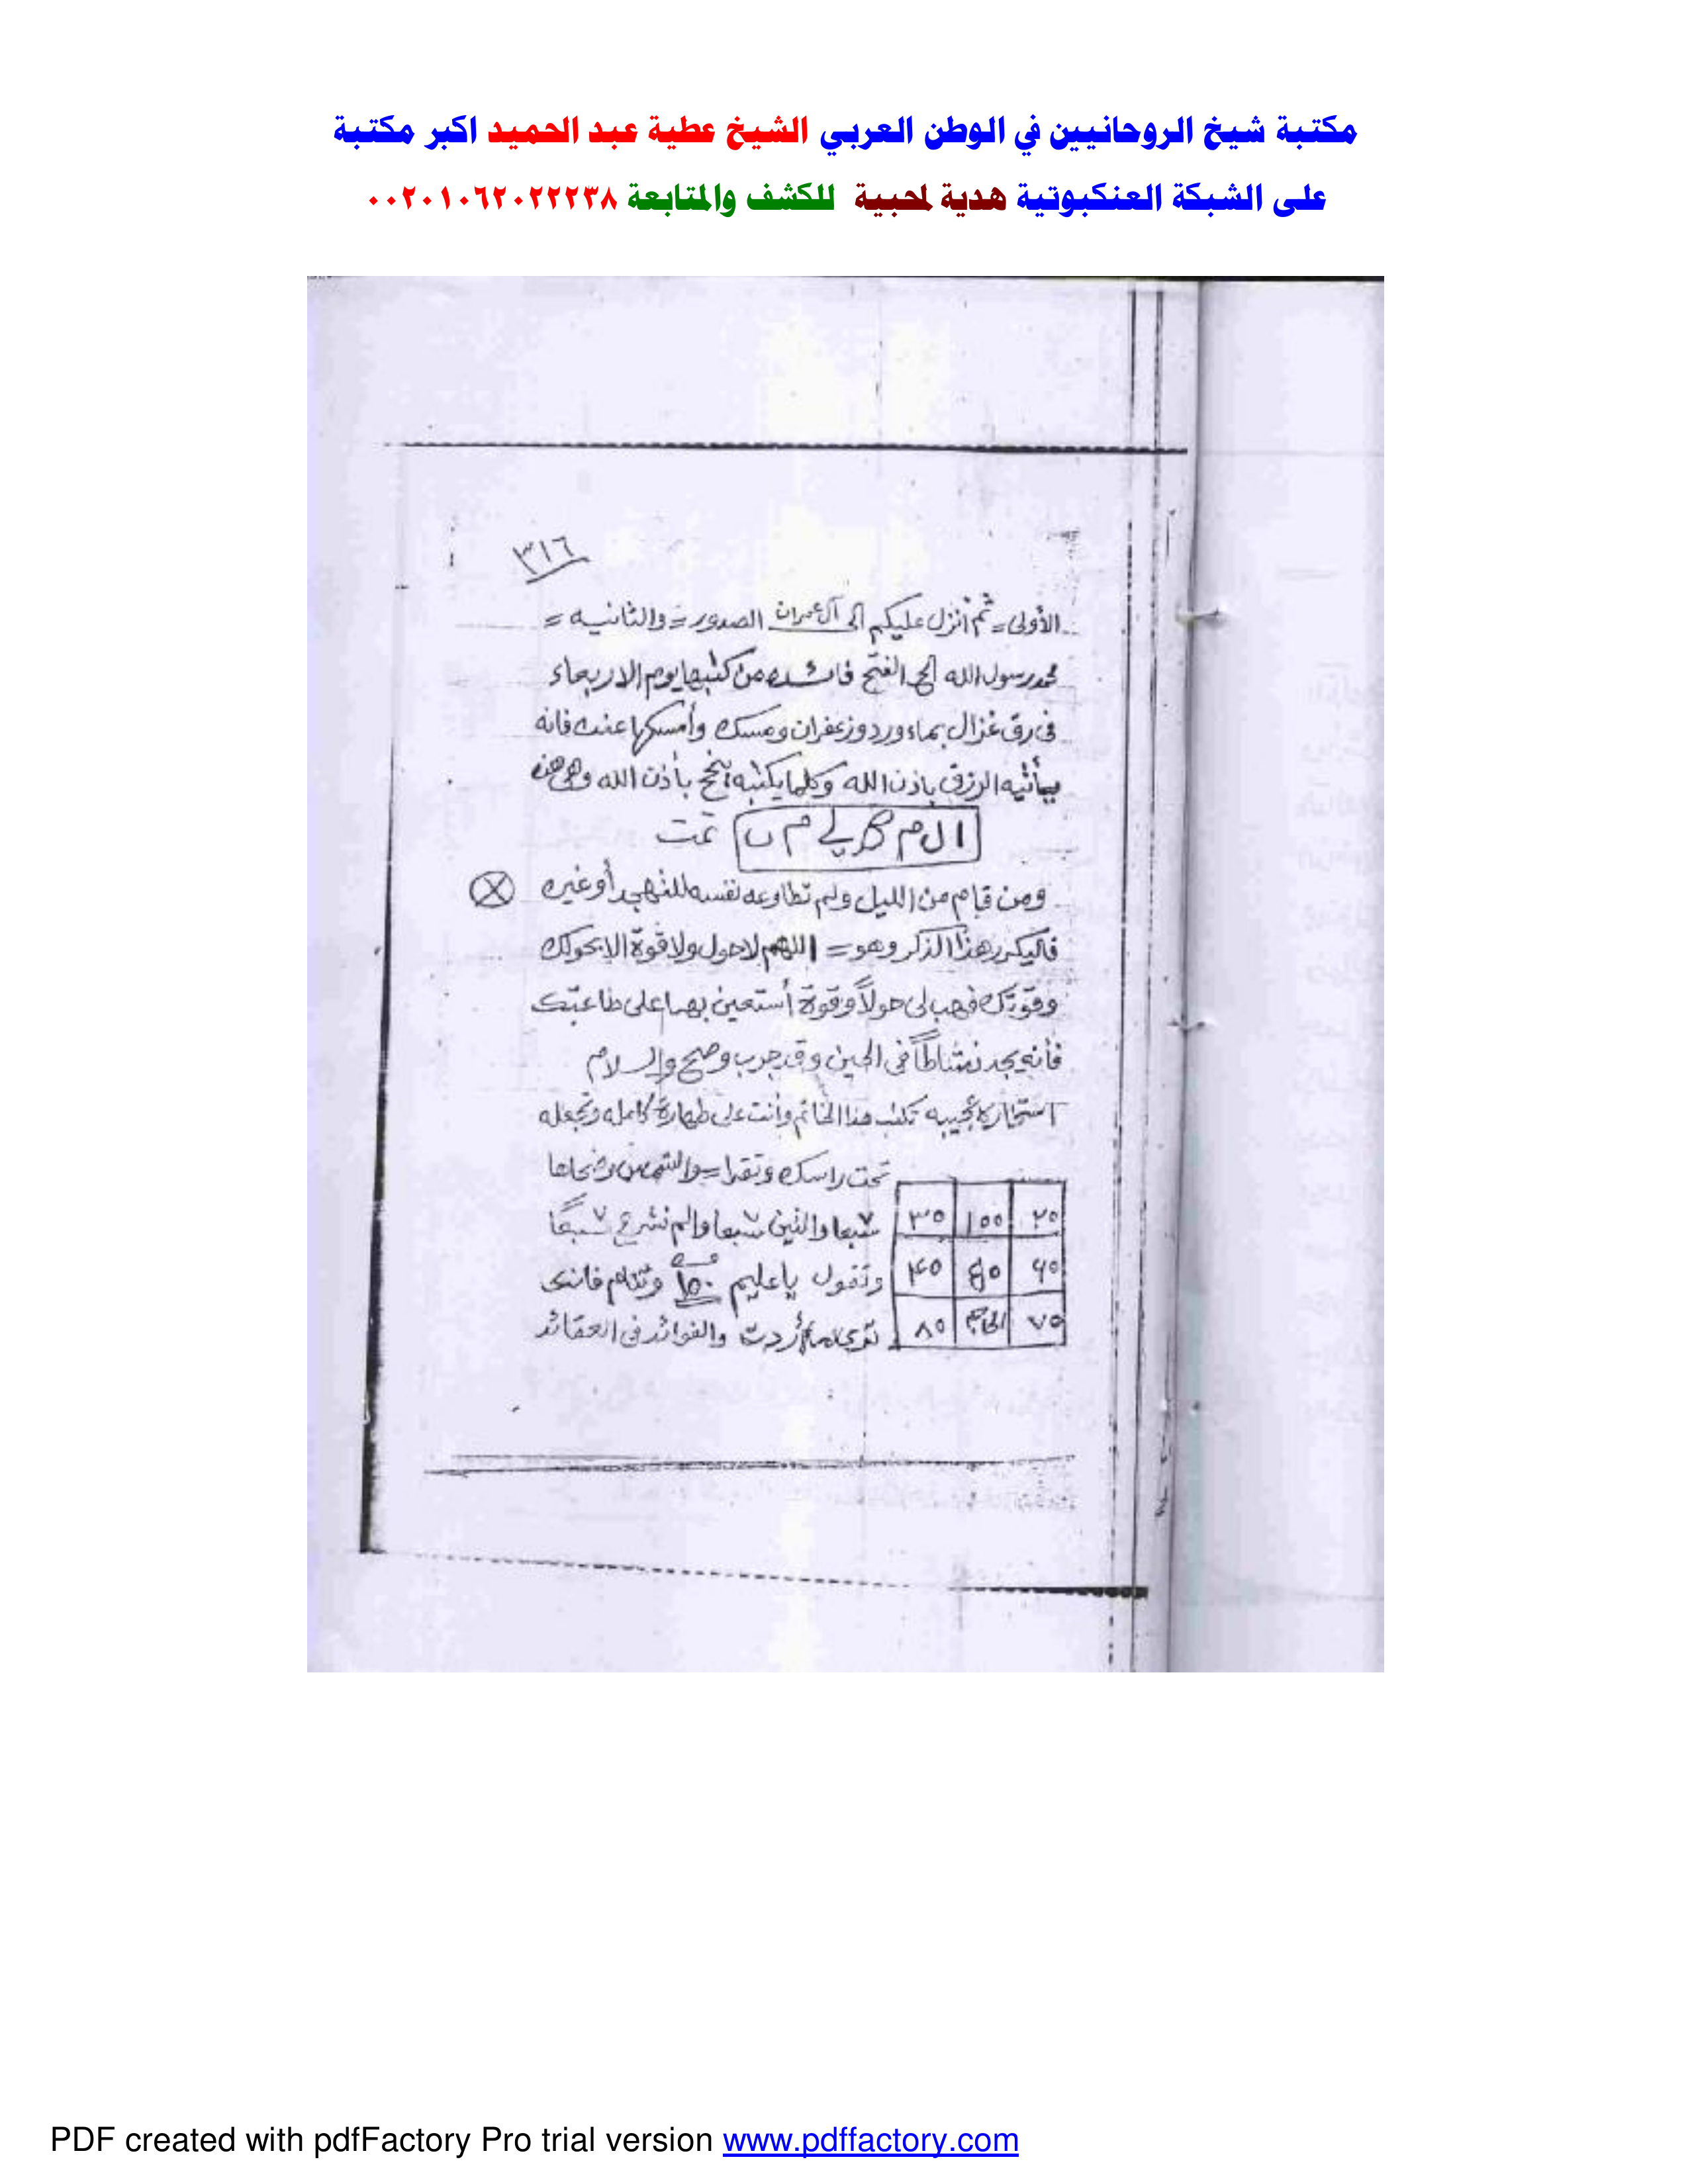 مكتبة شيخ الروحانيين في الوطن العربي الشيخ عطية عبد الحميد اكبر مكتبة
على الشبكة العنكبوتية هدية لمحبية للكشف والمتابعة ٠٠٢٠١٠٦٢٠٢٢٢٣٨
٣١٦
الأولى = ثم أنزل عليكم الى آل عمران الصدور = والثانيه =
محمد رسول الله الى الفتح فائده من كتبها يوم الاربعاء
فى رق غزال بماء ورد وزعفران ومسك وأمسكها عنده فانه
يأتيه الرزق باذن الله وكلما يكتبه ينجح بأذن الله وهى هذه
ا ل م م تمت
ومن قام من الليل ولم تطاوعه نفسه للتهجد أو غيره
فاليكرر هذا الذكر وهو = اللهم لا حول ولا قوة الا بحولك
وقوتك فهب لى حولاً وقوة أستعين بهما على طاعتك
فأنه يجد نشاطاً فى الحين وقد جرب وصح والسلام
استخاره عجيبه تكتب هذا الخاتم وأنت على طهارة كامله وتجعله
تحت راسك وتقرا والشمس وضحاها
سبعا ٧ والتين سبعا ٧ والم نشرح سبعًا ٧
وتقول ياعليم ١٥٠ مره وتنام فانك
ترى ما أردت والفوائد فى العقائد
٢٥ ١٥٥ ٣٥
٦٥ ٤٥
٧٥ ٨٥
PDF created with pdfFactory Pro trial version www.pdffactory.com